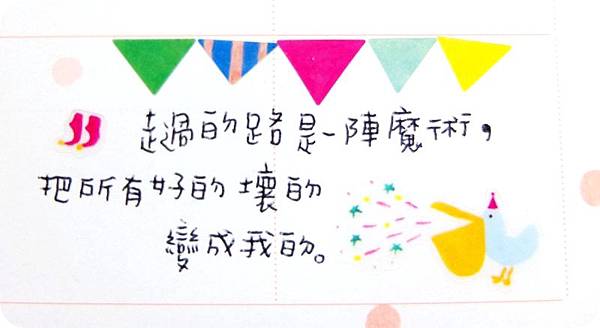 走過的路是一陣魔術，
把所有好的壞的
變成我的。